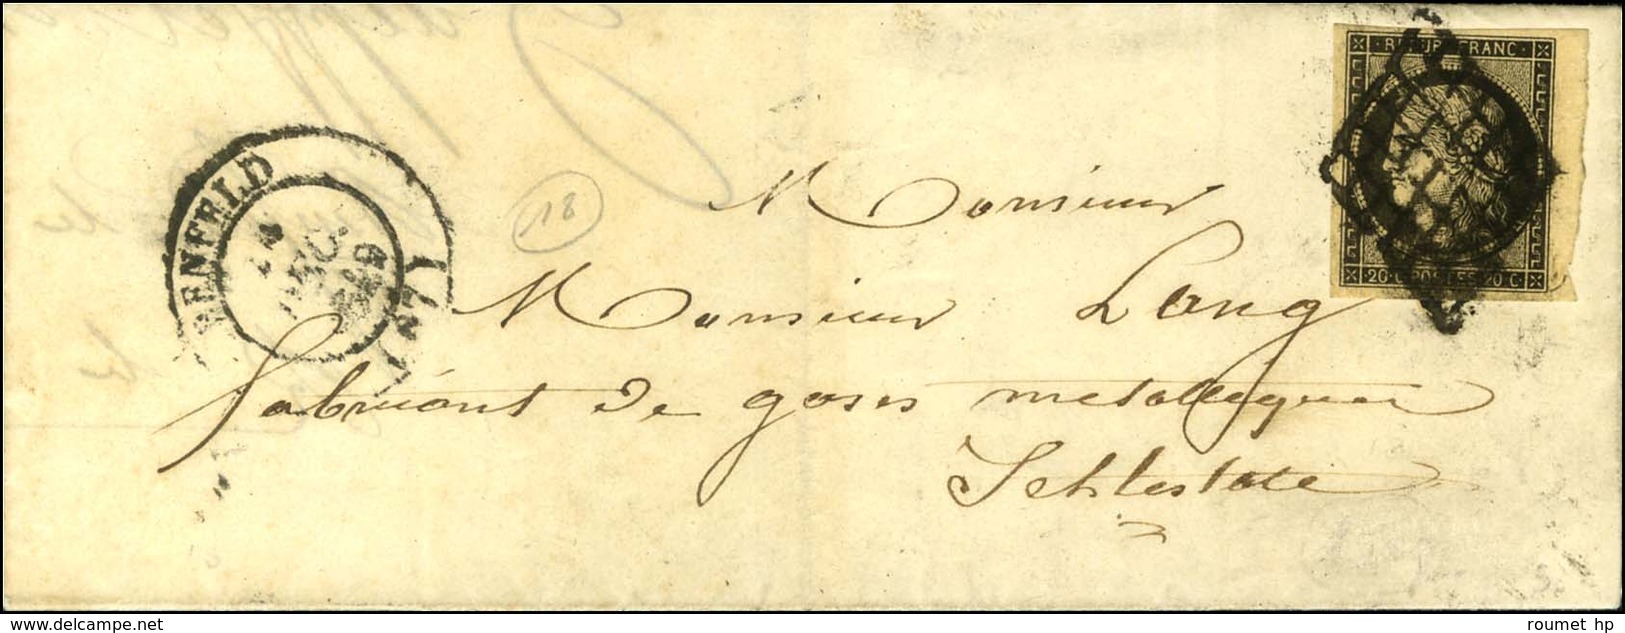 REPUB. FRANC
20 C. POSTES 20 C.
BENFELD
DEC.
(67)
18
Monsieur
Monsieur Lang
fabricant de gases metalliques
Schlestate
delcampe.net
roumet hp